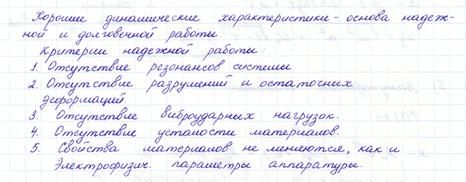 Хорошие динамические характеристики - основа надеж-
ной и долговечной работы.
Критерии надежной работы:
1. Отсутствие резонансов системы
2. Отсутствие разрушений и остаточных
деформаций.
3. Отсутствие виброударных нагрузок.
4. Отсутствие усталости материалов.
5. Свойства материалов не меняются, как и
электрофизич. параметры аппаратуры.